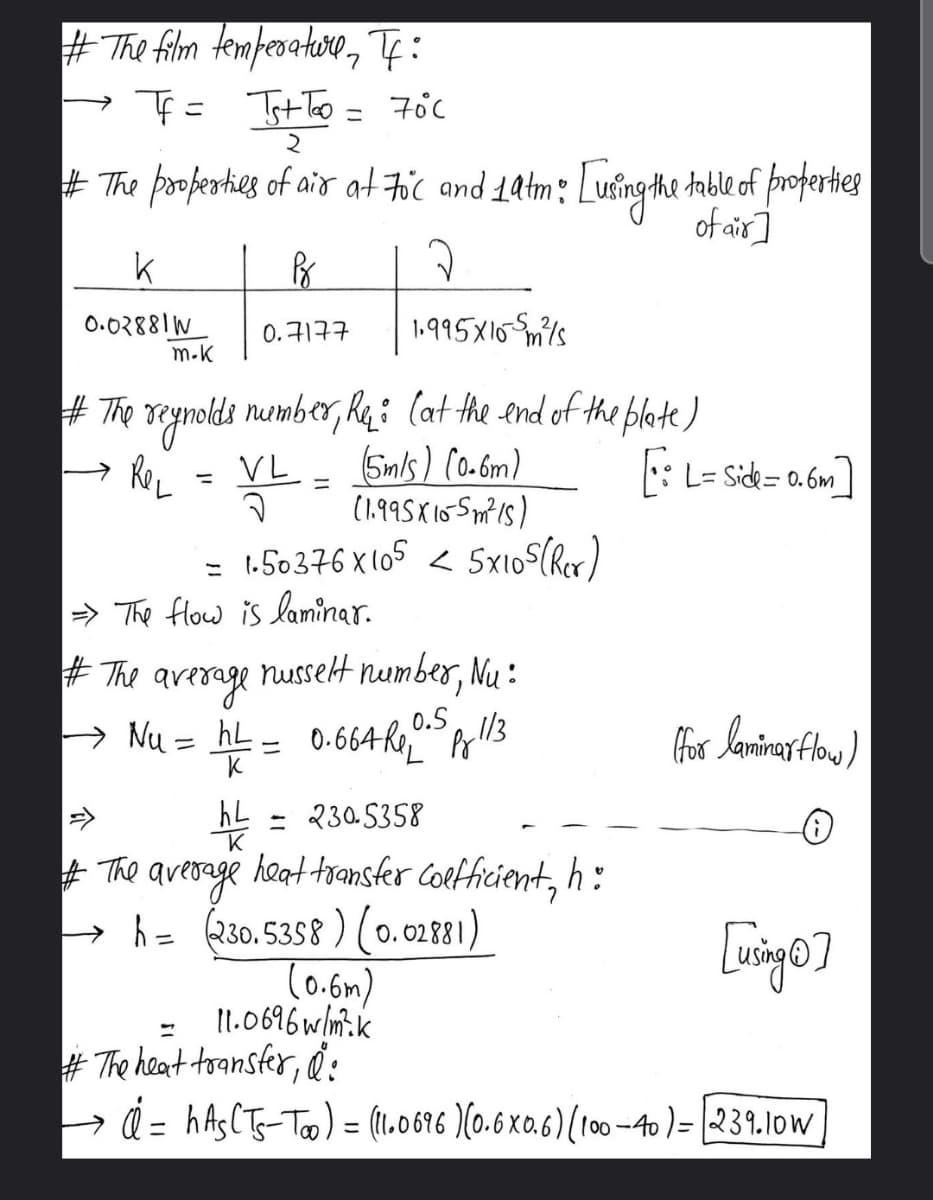 # The film temperature, Tf:
→ Tf = (Ts+T∞)/2 = 70°C
# The properties of air at 70°C and 1atm: [using the table of properties
of air]
k | Pr | ν
0.02881 W/m.K | 0.7177 | 1.995×10⁻⁵m²/s
# The reynolds number, ReL: (at the end of the plate)
→ ReL = VL/ν = (5m/s)(0.6m)/(1.995×10⁻⁵m²/s) [∵ L=Side=0.6m]
= 1.50376×10⁵ < 5×10⁵(Rcr)
⇒ The flow is laminar.
# The average nusselt number, Nu:
→ Nu = hL/K = 0.664ReL^0.5 Pr^1/3 (for laminar flow)
⇒ hL/K = 230.5358 - — — — — (i)
# The average heat transfer coefficient, h:
→ h = (230.5358)(0.02881)/(0.6m) [using (i)]
= 11.0696 w/m².k
# The heat transfer, Q̇:
→ Q̇ = hAs(Ts-T∞) = (11.0696)(0.6×0.6)(100-40) = 239.10W